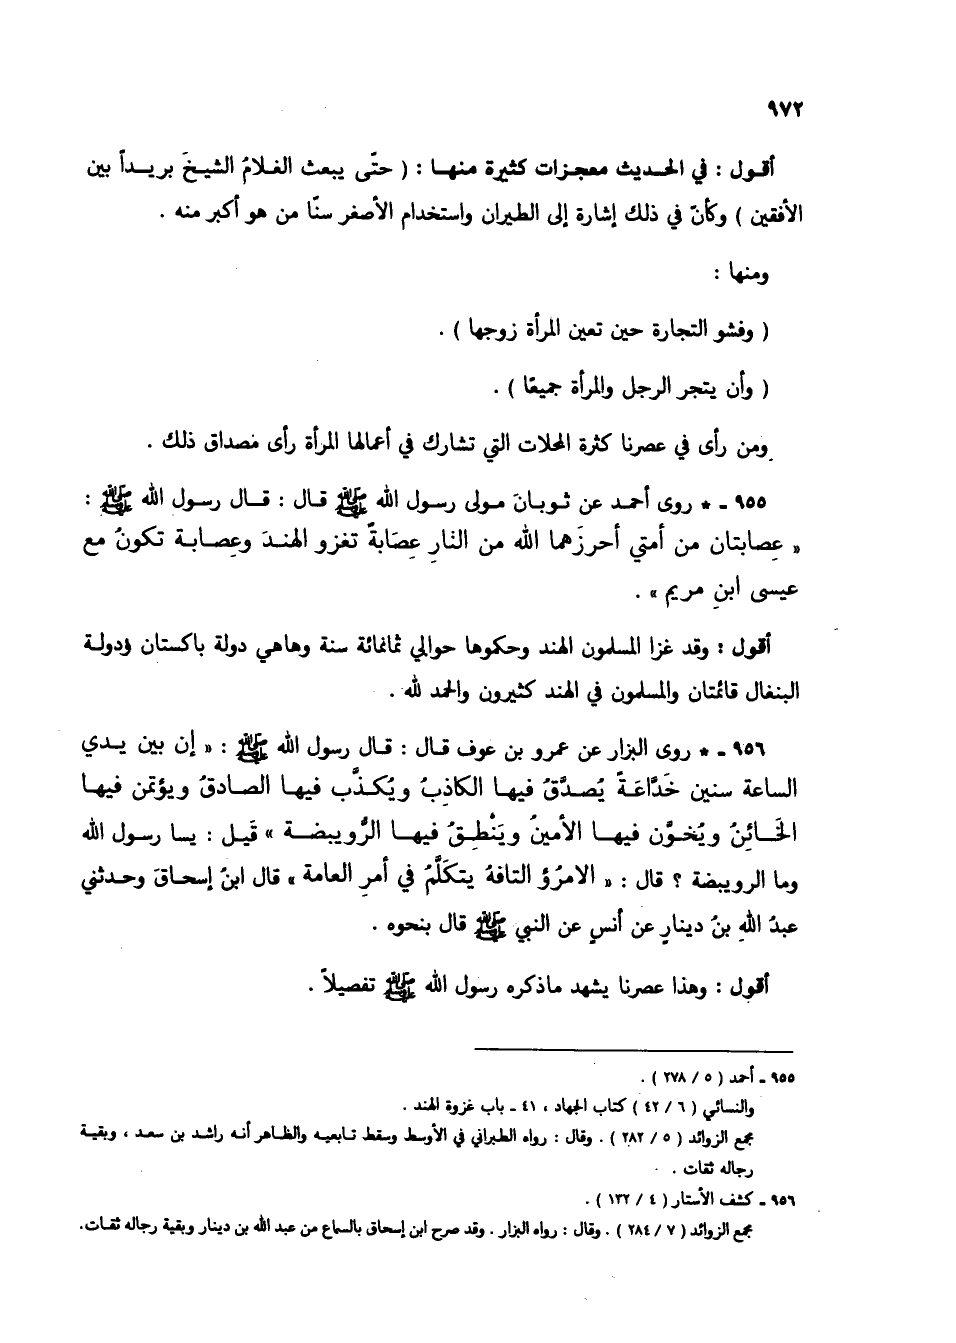 ٩٧٢
أقـول : في الحـديث معجـزات كثيرة منهـا : ( حتّى يبعث الغـلامُ الشيـخَ بريـداً بين
الأفقين ) وكأنّ في ذلك إشارة إلى الطيران واستخدام الأصغر سنّا من هو أكبر منه .
ومنها :
( وفشو التجارة حين تعين المرأة زوجها ) .
( وأن يتجر الرجل والمرأة جميعًا ) .
ومن رأى في عصرنا كثرة المحلات التي تشارك في أعمالها المرأة رأى مصداق ذلك .
٩٥٥ - * روى أحمـد عن ثـوبـانَ مـولى رسـول الله ﷺ قـال : قـال رسـول الله ﷺ :
« عِصابتان من أمتي أحرزَهما الله من النارِ عِصَابةٌ تغزو الهندَ وعِصـابـة تكونُ مع
عيسى ابنِ مريم » .
أقول : وقد غزا المسلمون الهند وحكموها حوالي ثمانمائة سنة وهاهي دولة باكستان ودولـة
البنغال قائمتان والمسلمون في الهند كثيرون والحمد لله .
٩٥٦ - * روى البزار عن عمرو بن عوف قـال : قـال رسول الله ﷺ : « إن بين يـدي
الساعة سنين خَدَّاعَـةً يُصـدَّقُ فيهـا الكاذِبُ ويُكـذَّب فيهـا الصادقُ ويؤتمن فيهـا
الخَـائِنُ ويُخـوَّن فيهـا الأمينُ ويَنْطِـقُ فيهـا الرُّويبضـة » قِيـل : يـا رسول الله
وما الرويبضة ؟ قال : « الامرُؤ التافهُ يتكلَّمُ في أمرِ العامة » قال ابنُ إسحـاقَ وحـدثني
عبدُ اللهِ بنُ دينارٍ عن أنسٍ عن النبي ﷺ قال بنحوه .
أقول : وهذا عصرنا يشهد ماذكره رسول الله ﷺ تفصيلاً .
٩٥٥ - أحمد ( ٥ / ٢٧٨ ) .
والنسائي ( ٦ / ٤٢ ) كتاب الجهاد ، ٤١ - باب غزوة الهند .
مجمع الزوائد ( ٥ / ٢٨٢ ) . وقال : رواه الطبراني في الأوسط وسقط تـابعيـه والظـاهر أنـه راشـد بن سعـد ، وبقيـة
رجاله ثقات .
٩٥٦ - كشف الأستار ( ٤ / ١٣٢ ) .
مجمع الزوائد ( ٧ / ٢٨٤ ) . وقال : رواه البزار . وقد صرح ابن إسحاق بالسماع من عبد الله بن دينار وبقية رجاله ثقـات .